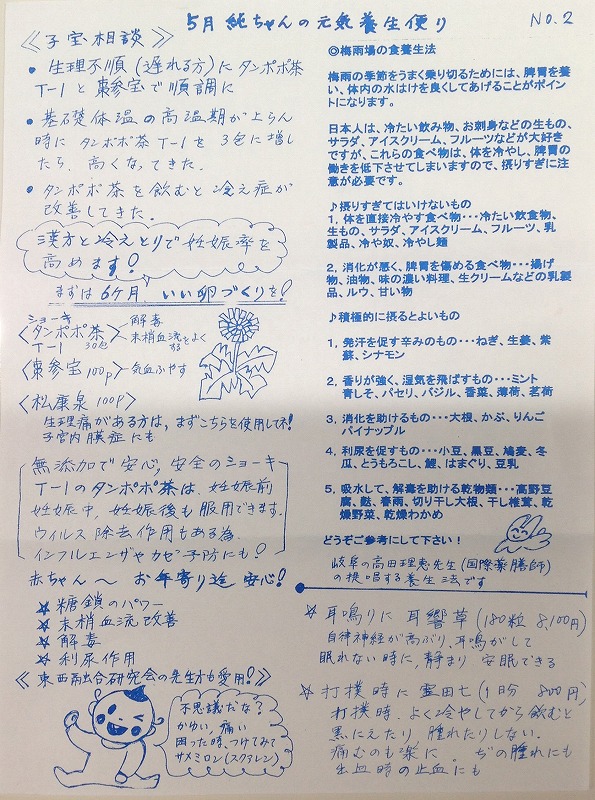 5月 純ちゃんの元気養生便り
NO.2
《子宝相談》
• 生理不順(遅れる方)にタンポポ茶
T-1と棗参宝で順調に
• 基礎体温の高温期が上らん
時にタンポポ茶T-1を3包に増し
たら、高くなってきた。
• タンポポ茶を飲むと冷え症が
改善してきた。
漢方と冷えとりで妊娠率を
高めます!
まずは6ケ月、いい卵づくりを!
ショーキ
〈タンポポ茶
T-1 30包〉
解毒
末梢血流をよく
する
〈棗参宝 100p〉―気血ふやす
〈松康泉 100p〉
生理痛がある方は、まずこちらを使用して下さい!
子宮内膜症にも
無添加で安心,安全のショーキ
T-1のタンポポ茶は、妊娠前
妊娠中、妊娠後も服用できます。
ウィルス除去作用もある為、
インフルエンザやカゼ予防にも!
赤ちゃん〜 お年寄り迄 安心!
☆ 糖鎖のパワー
☆ 末梢血流改善
☆ 解毒
☆ 利尿作用
《東西融合研究会の先生方も愛用!》
不思議だな?
かゆい、痛い
困った時、つけてみて
サメミロン(スクアレン)
◎梅雨場の食養生法
梅雨の季節をうまく乗り切るためには、脾胃を養
い、体内の水はけを良くしてあげることがポイン
トになります。
日本人は、冷たい飲み物、お刺身などの生もの、
サラダ、アイスクリーム、フルーツなどが大好き
ですが、これらの食べ物は、体を冷やし、脾胃の
働きを低下させてしまいますので、摂りすぎに注
意が必要です。
♪摂りすぎてはいけないもの
1. 体を直接冷やす食べ物・・・冷たい飲食物、
生もの、サラダ、アイスクリーム、フルーツ、乳
製品、冷や奴、冷やし麺
2. 消化が悪く、脾胃を傷める食べ物・・・揚げ
物、油物、味の濃い料理、生クリームなどの乳製
品、ルウ、甘い物
♪積極的に摂るとよいもの
1. 発汗を促す辛みのもの・・・ねぎ、生姜、紫
蘇、シナモン
2. 香りが強く、湿気を飛ばすもの・・・ミント
青しそ、パセリ、バジル、香菜、薄荷、茗荷
3. 消化を助けるもの・・・大根、かぶ、りんご
パイナップル
4. 利尿を促すもの・・・小豆、黒豆、鳩麦、冬
瓜、とうもろこし、鯉、はまぐり、豆乳
5. 吸水して、解毒を助ける乾物類・・・高野豆
腐、麩、春雨、切り干し大根、干し椎茸、乾
燥野菜、乾燥わかめ
どうぞご参考にして下さい!
岐阜の高田理恵先生(国際薬膳師)
の提唱する養生法です
☆ 耳鳴りに 耳響草 (180粒 8,100円)
自律神経が高ぶり、耳鳴がして
眠れない時に,静まり 安眠できる
☆ 打撲時に 霊田七 (1日分 800円)
打撲時、よく冷やしてから飲むと
黒にえたり,腫れたりしない。
痛むのも楽に。ぢの腫れにも
出血時の止血にも